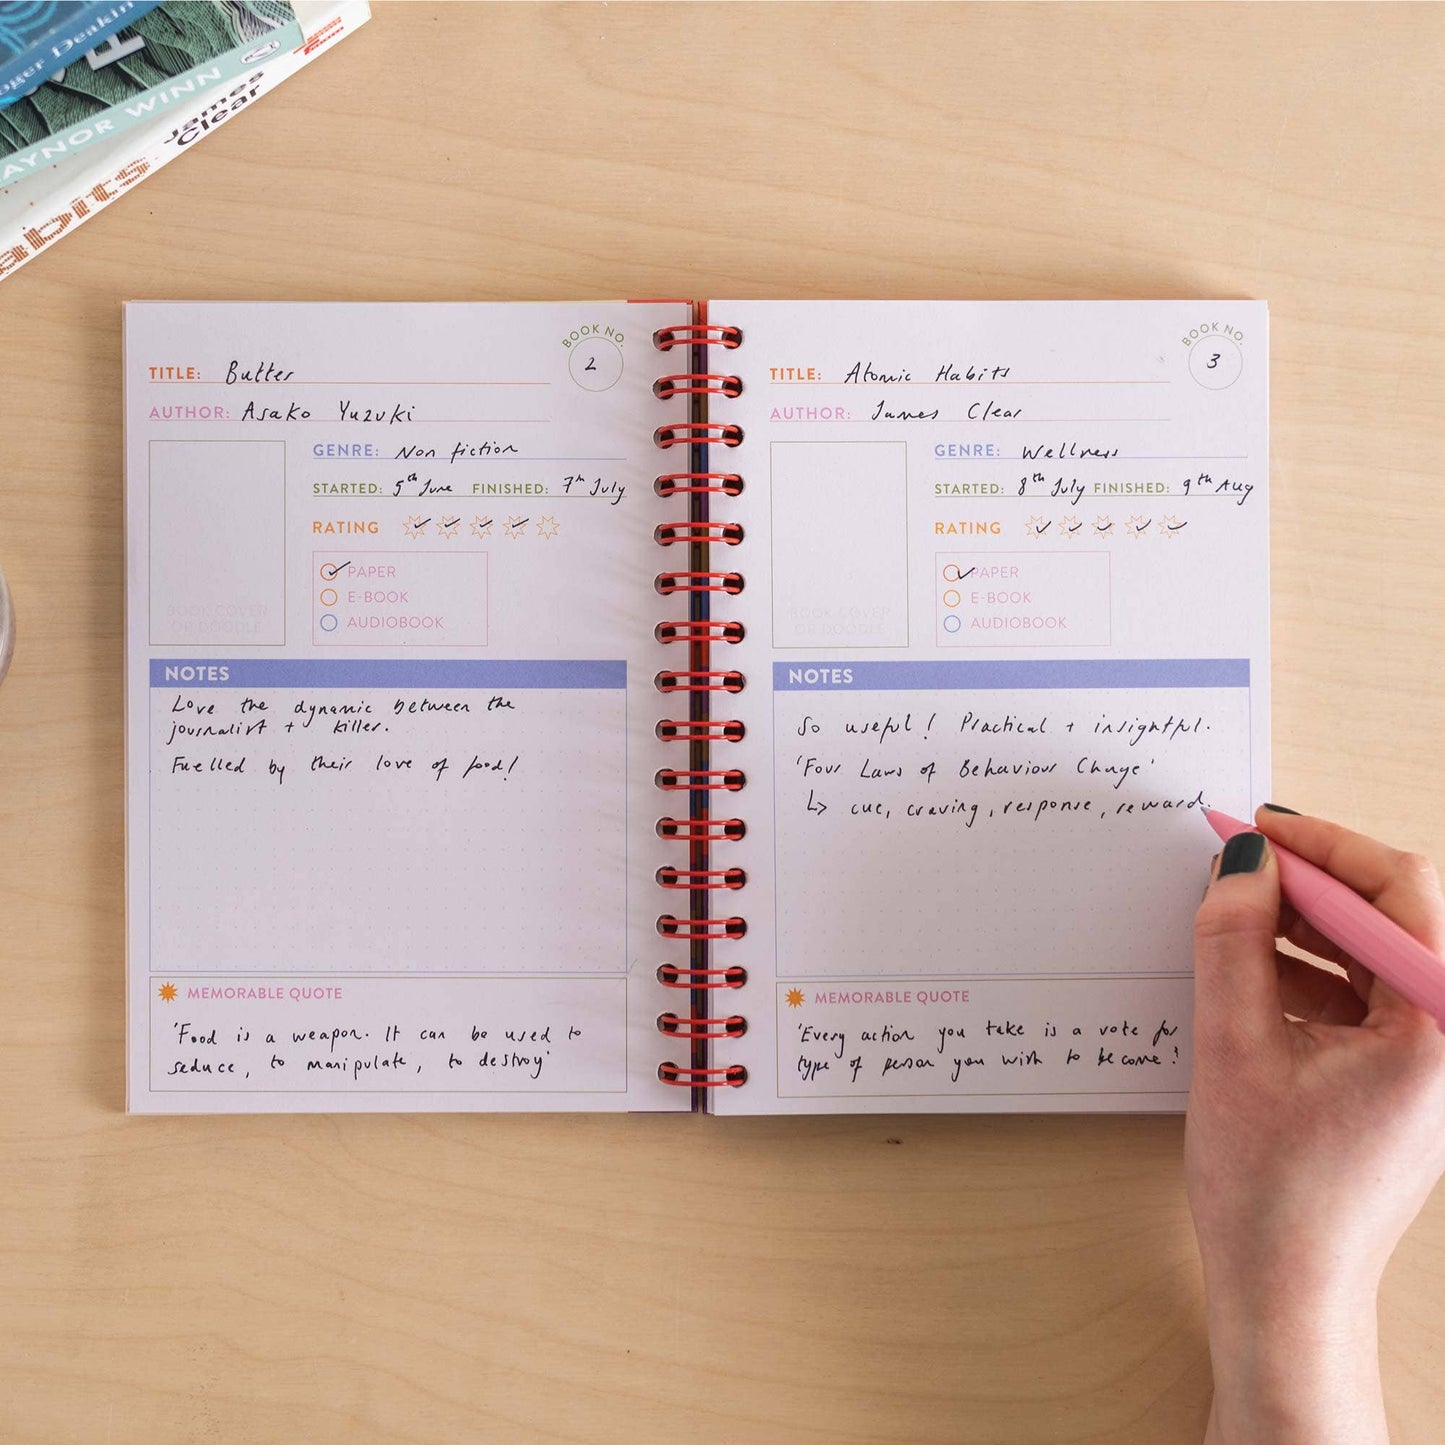 oger Deakin
AYNOR WINN
James
Clear
abits
BOOK NO.
2
TITLE: Butter
AUTHOR: Asako Yuzuki
GENRE: Non fiction
STARTED: 5th June FINISHED: 7th July
RATING
PAPER
E-BOOK
AUDIOBOOK
BOOK COVER
OR DOODLE
NOTES
Love the dynamic between the
journalist + killer.
Fuelled by their love of food!
MEMORABLE QUOTE
'Food is a weapon. It can be used to
seduce, to manipulate, to destroy'
BOOK NO.
3
TITLE: Atomic Habits
AUTHOR: James Clear
GENRE: Wellness
STARTED: 8th July FINISHED: 9th Aug
RATING
PAPER
E-BOOK
AUDIOBOOK
BOOK COVER
OR DOODLE
NOTES
So useful! Practical + insightful.
'Four Laws of Behaviour Change'
↳ cue, craving, response, reward.
MEMORABLE QUOTE
'Every action you take is a vote for
type of person you wish to become!